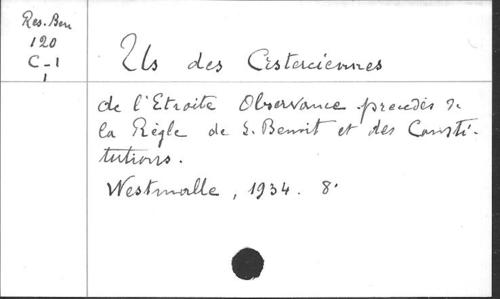 Res. Ben
120
C-1
1
Us des Cisterciennes
de l'Etroite Observance precédés de
la Règle de S. Benoit et des Consti-
tutions.
Westmalle, 1934. 8°